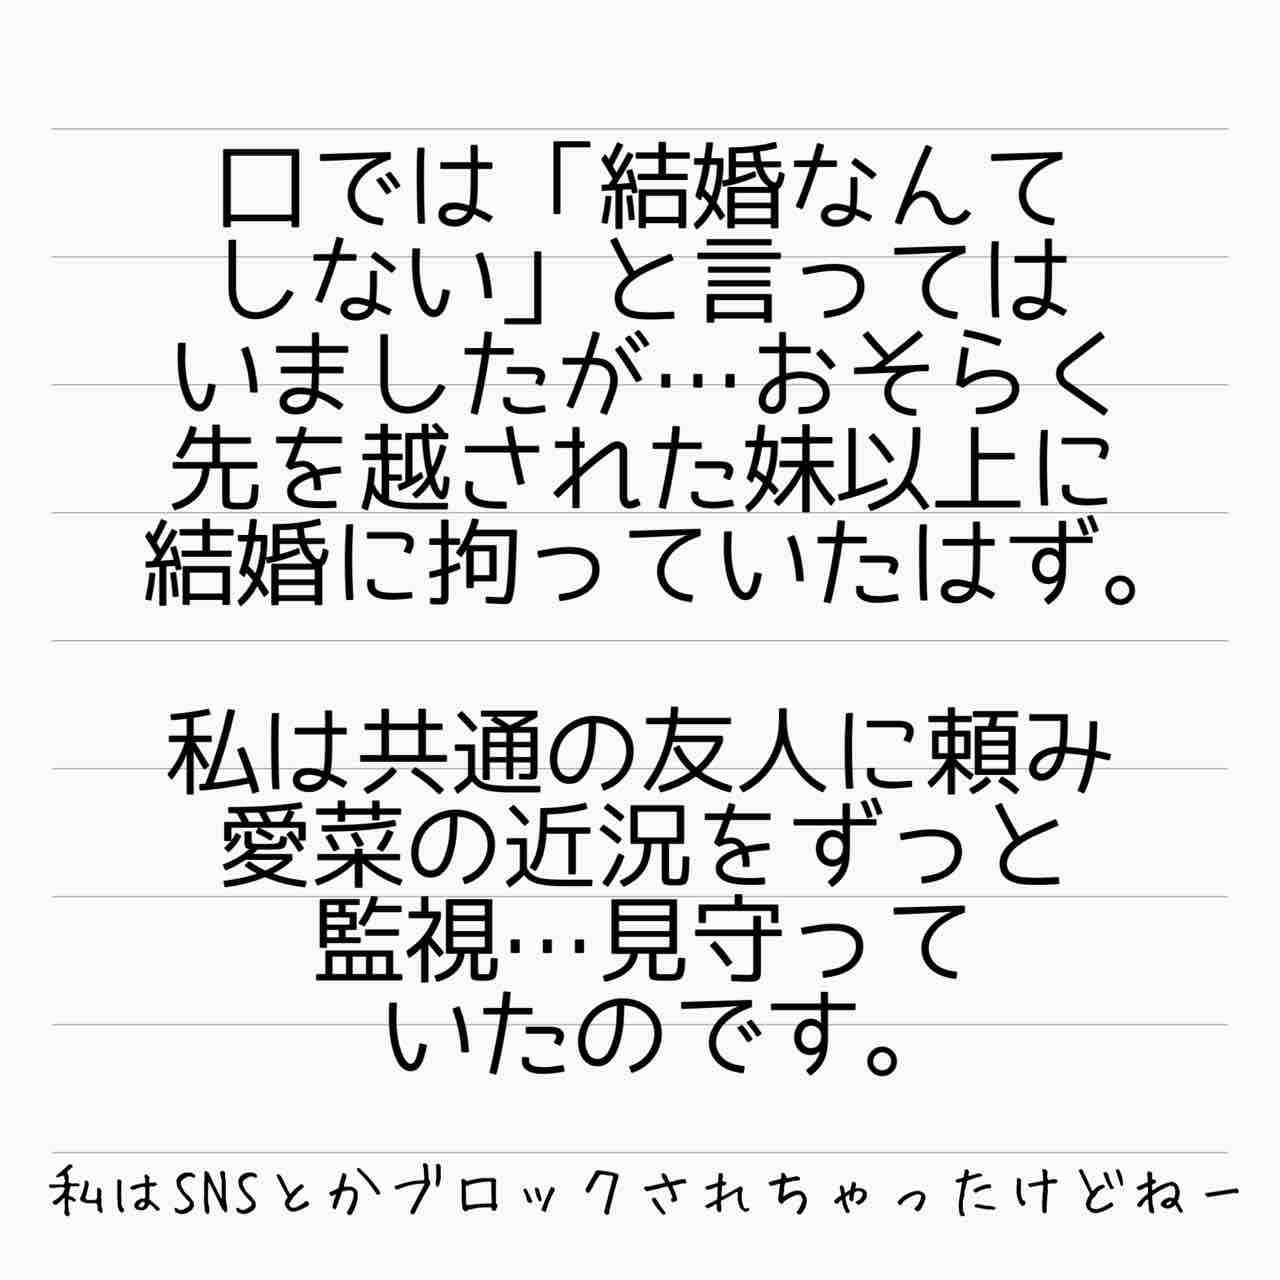 口では「結婚なんて
しない」と言っては
いましたが…おそらく
先を越された妹以上に
結婚に拘っていたはず。
私は共通の友人に頼み
愛菜の近況をずっと
監視…見守って
いたのです。
私はSNSとかブロックされちゃったけどねー